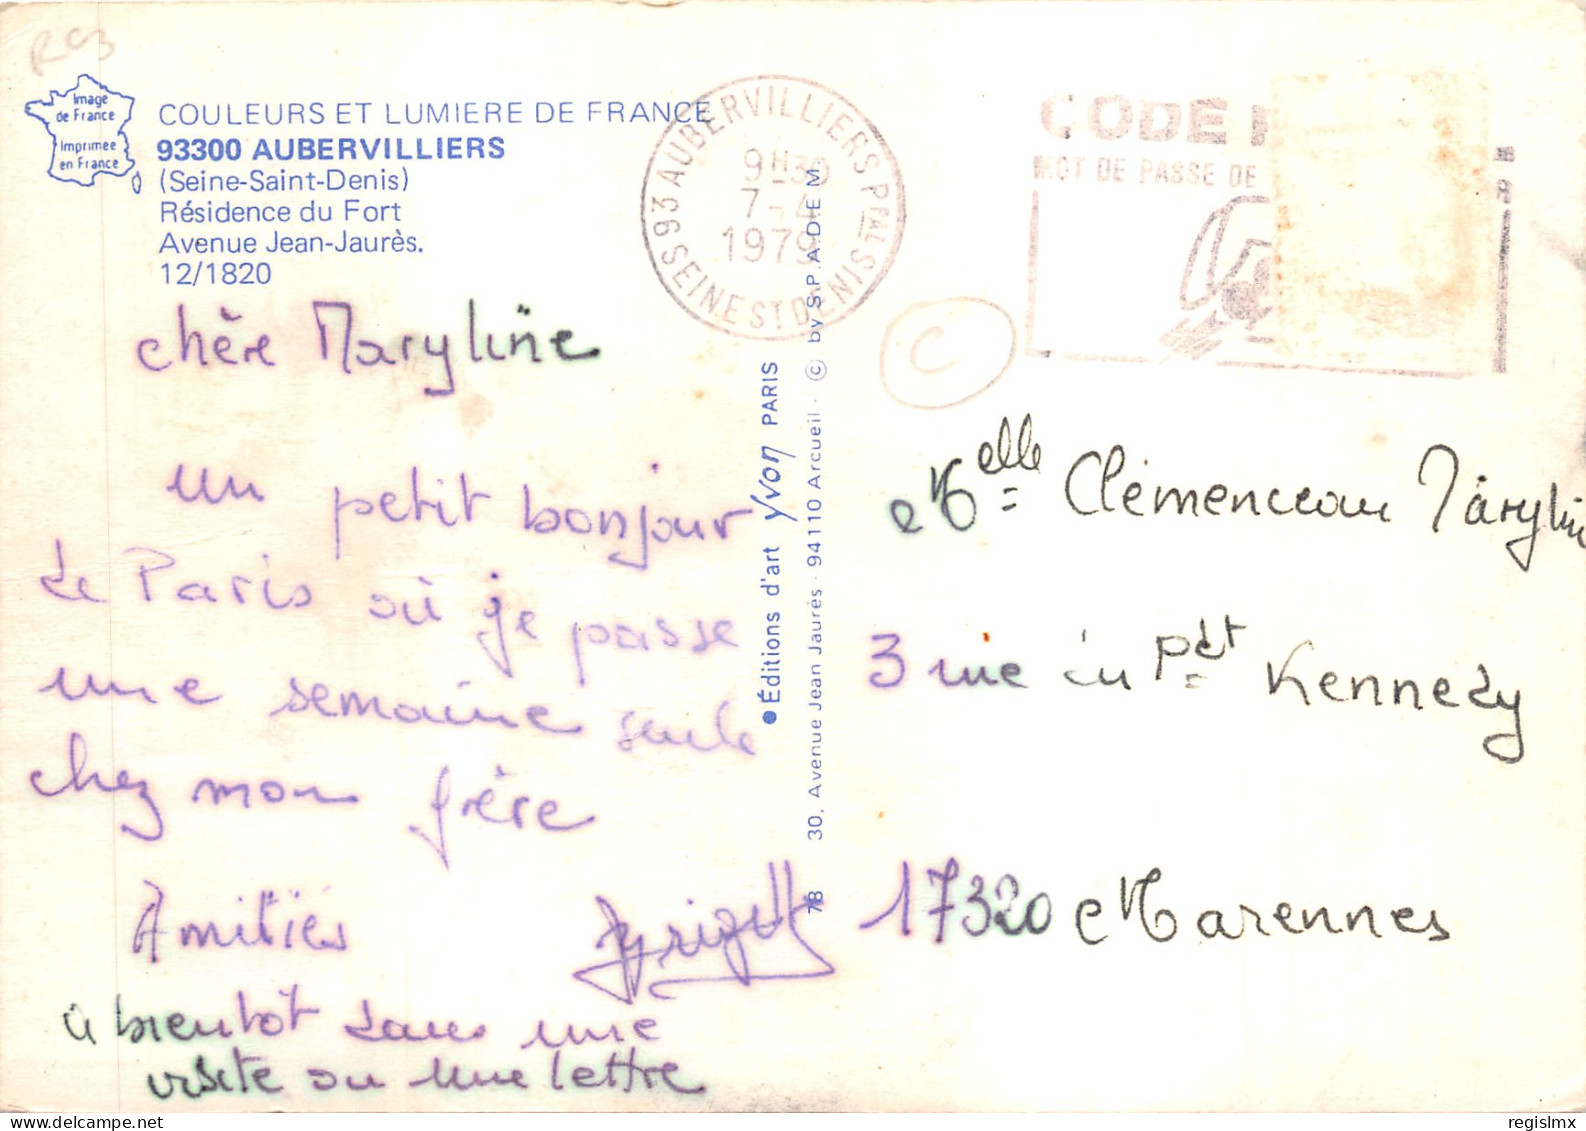 Rc3
Image
de France
Imprimée
en France
COULEURS ET LUMIERE DE FRANCE
93300 AUBERVILLIERS
(Seine-Saint-Denis)
Résidence du Fort
Avenue Jean-Jaurès.
12/1820
93 AUBERVILLIERS PPAL
9H30
7-4
1979
SEINE ST DENIS
CODE P
MOT DE PASSE DE
chère Maryline
un petit bonjour
de Paris où je passe
une semaine seule
chez mon frère
Amitiés Brigitte
à bientôt dans une
visite ou une lettre
● Éditions d'art Yvon PARIS
78 30, Avenue Jean Jaurès · 94110 Arcueil · © by S.P.A.D.E.M.
C
Melle Clémenceau Maryline
3 rue du Pdt Kennedy
17320 Marennes
regislmx